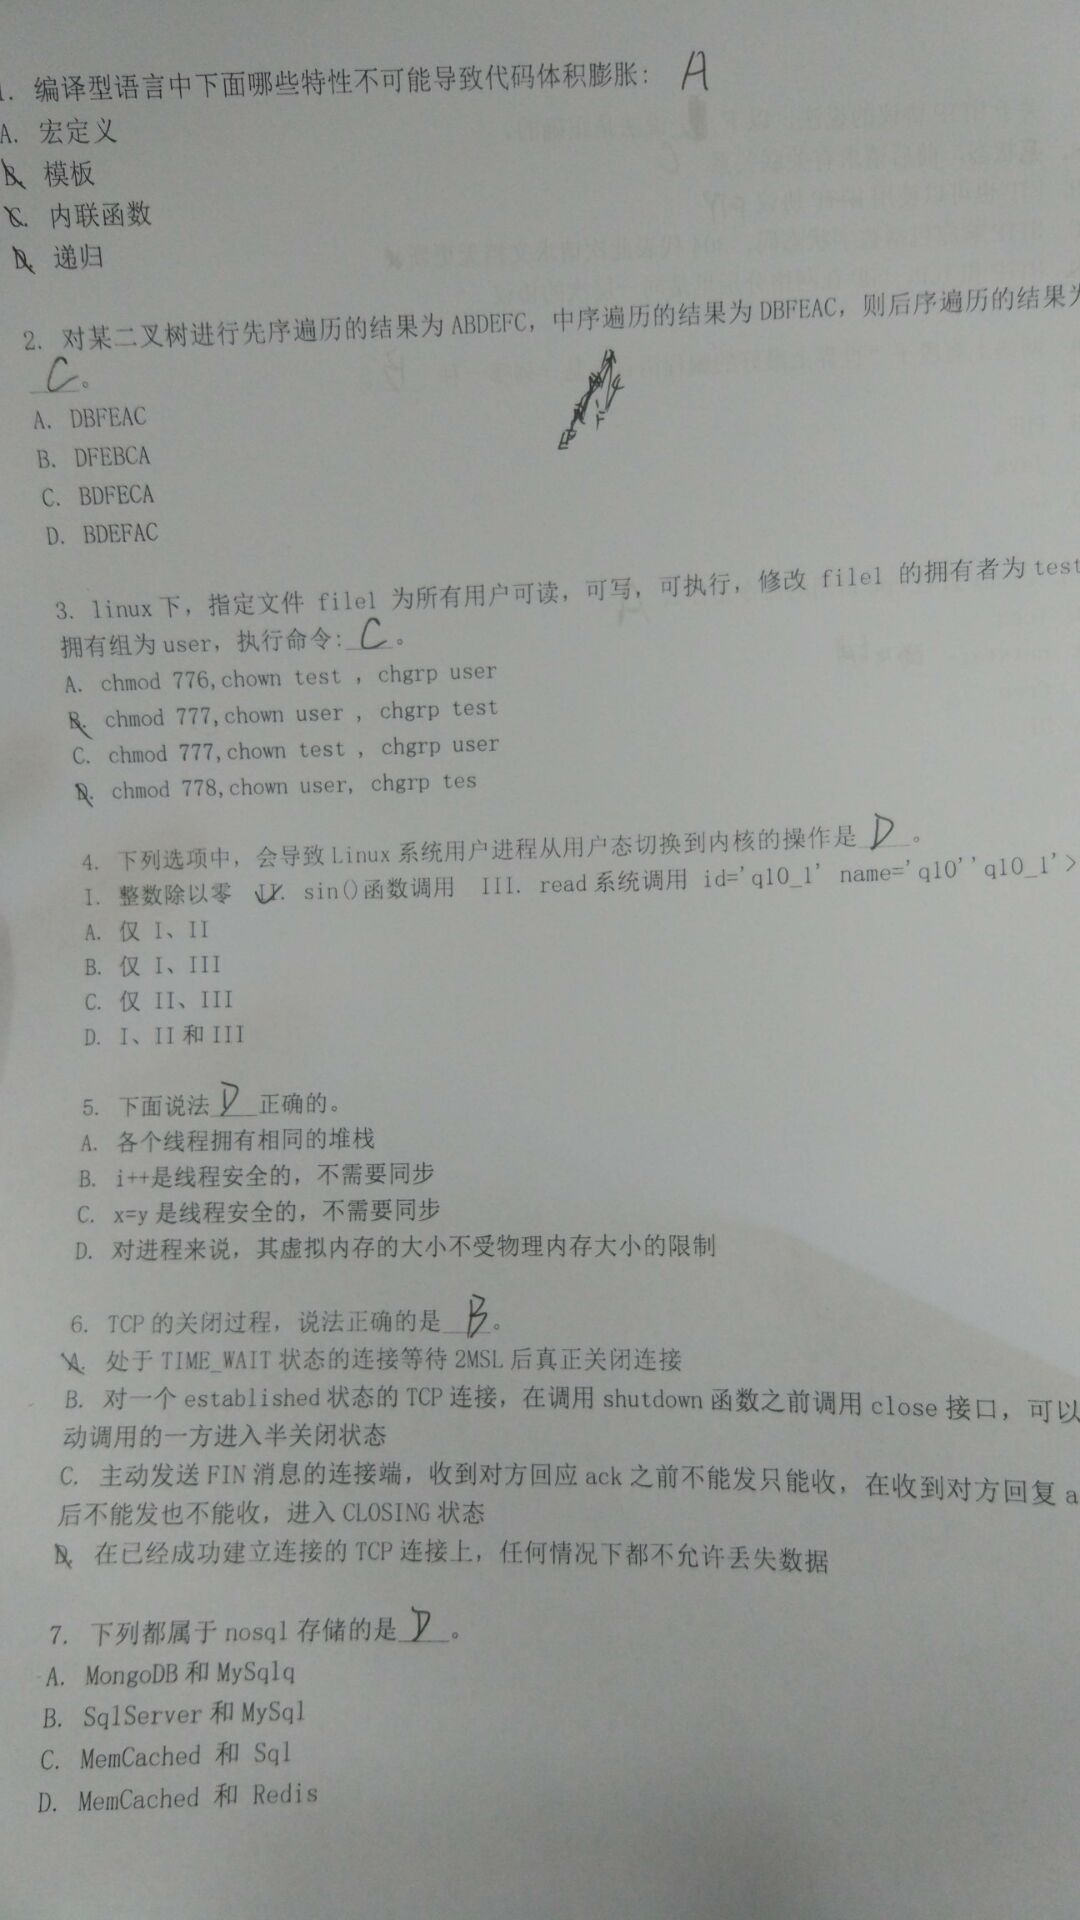 1. 编译型语言中下面哪些特性不可能导致代码体积膨胀: A
A. 宏定义
B. 模板
C. 内联函数
D. 递归
2. 对某二叉树进行先序遍历的结果为 ABDEFC, 中序遍历的结果为 DBFEAC, 则后序遍历的结果为
C。
A. DBFEAC
B. DFEBCA
C. BDFECA
D. BDEFAC
3. linux 下, 指定文件 file1 为所有用户可读, 可写, 可执行, 修改 file1 的拥有者为 test
拥有组为 user, 执行命令: C 。
A. chmod 776,chown test , chgrp user
B. chmod 777,chown user , chgrp test
C. chmod 777,chown test , chgrp user
D. chmod 778,chown user, chgrp tes
4. 下列选项中, 会导致 Linux 系统用户进程从用户态切换到内核的操作是 D 。
I. 整数除以零 II. sin()函数调用 III. read 系统调用 id='q10_1' name='q10''q10_1'>
A. 仅 I、II
B. 仅 I、III
C. 仅 II、III
D. I、II 和 III
5. 下面说法 D 正确的。
A. 各个线程拥有相同的堆栈
B. i++是线程安全的, 不需要同步
C. x=y 是线程安全的, 不需要同步
D. 对进程来说, 其虚拟内存的大小不受物理内存大小的限制
6. TCP 的关闭过程, 说法正确的是 B 。
A. 处于 TIME_WAIT 状态的连接等待 2MSL 后真正关闭连接
B. 对一个 established 状态的 TCP 连接, 在调用 shutdown 函数之前调用 close 接口, 可以
动调用的一方进入半关闭状态
C. 主动发送 FIN 消息的连接端, 收到对方回应 ack 之前不能发只能收, 在收到对方回复 a
后不能发也不能收, 进入 CLOSING 状态
D. 在已经成功建立连接的 TCP 连接上, 任何情况下都不允许丢失数据
7. 下列都属于 nosql 存储的是 D 。
A. MongoDB 和 MySqlq
B. SqlServer 和 MySql
C. MemCached 和 Sql
D. MemCached 和 Redis